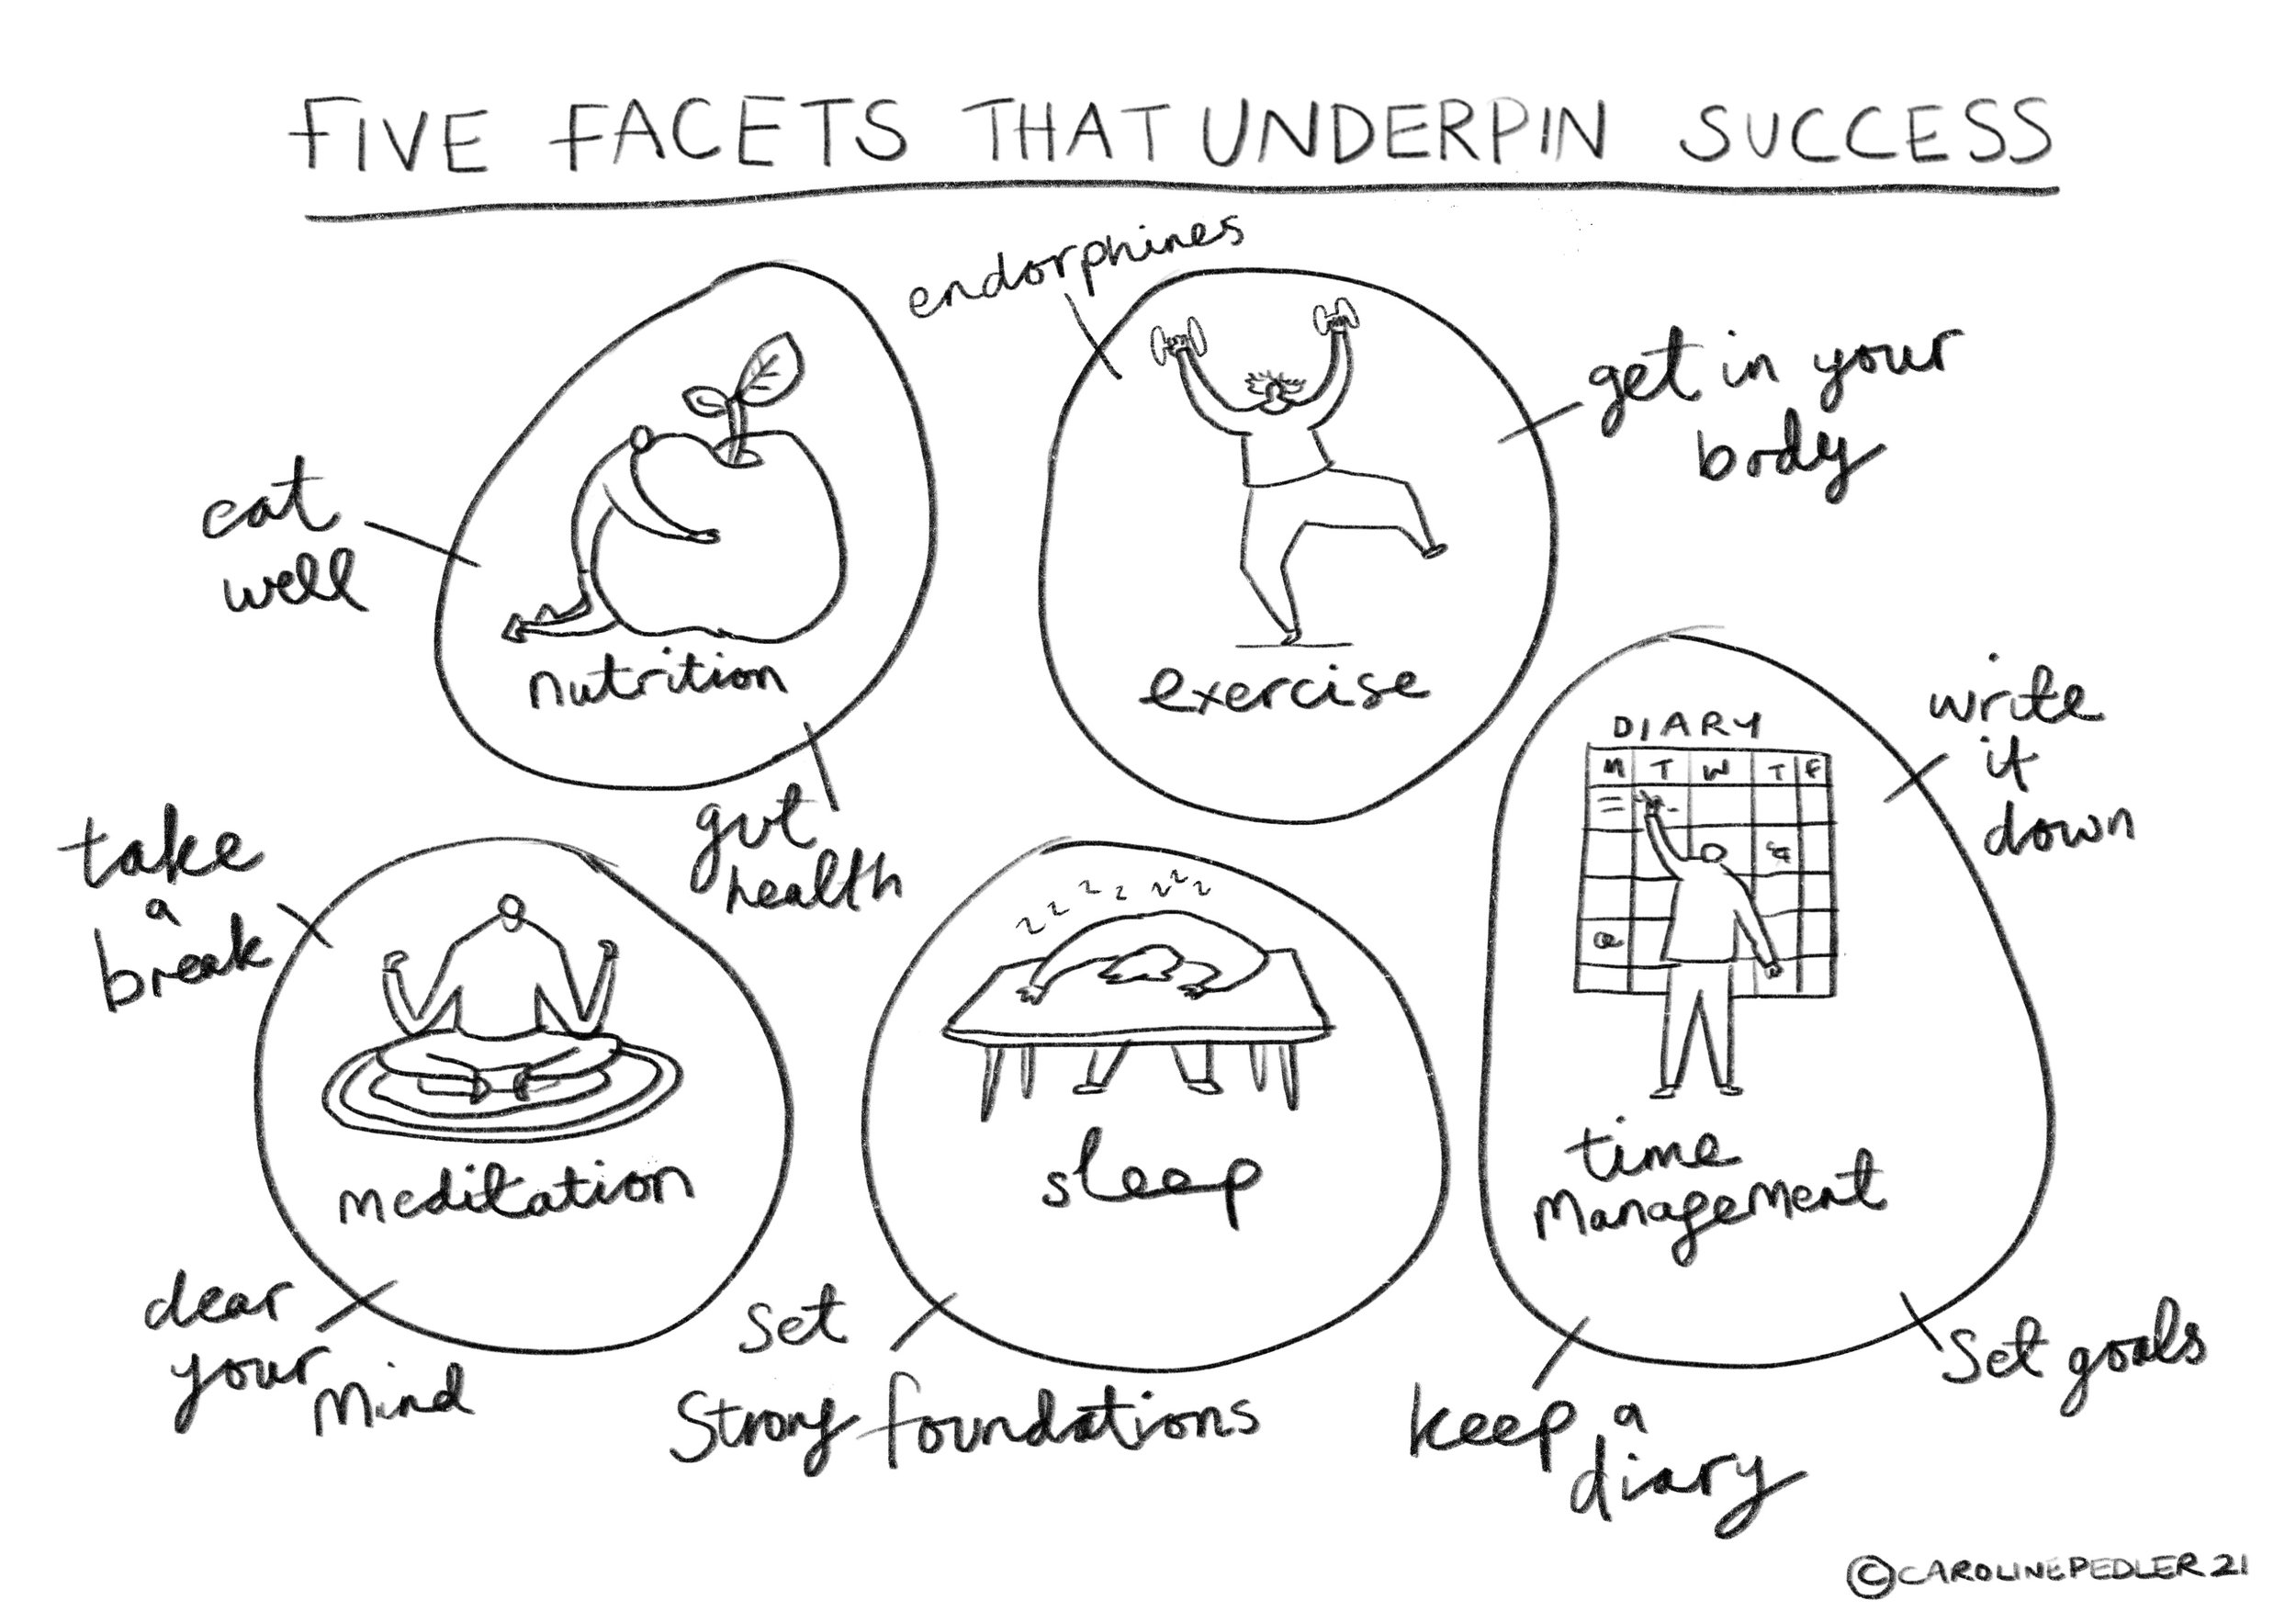 FIVE FACETS THAT UNDERPIN SUCCESS
endorphines
get in your
body
eat
well
nutrition
exercise
gut
health
DIARY
M T W T F
write
it
down
time
management
take
a
break
meditation
sleep
clear
your
mind
set
strong foundations
keep a
diary
set goals
©CAROLINEPEDLER21